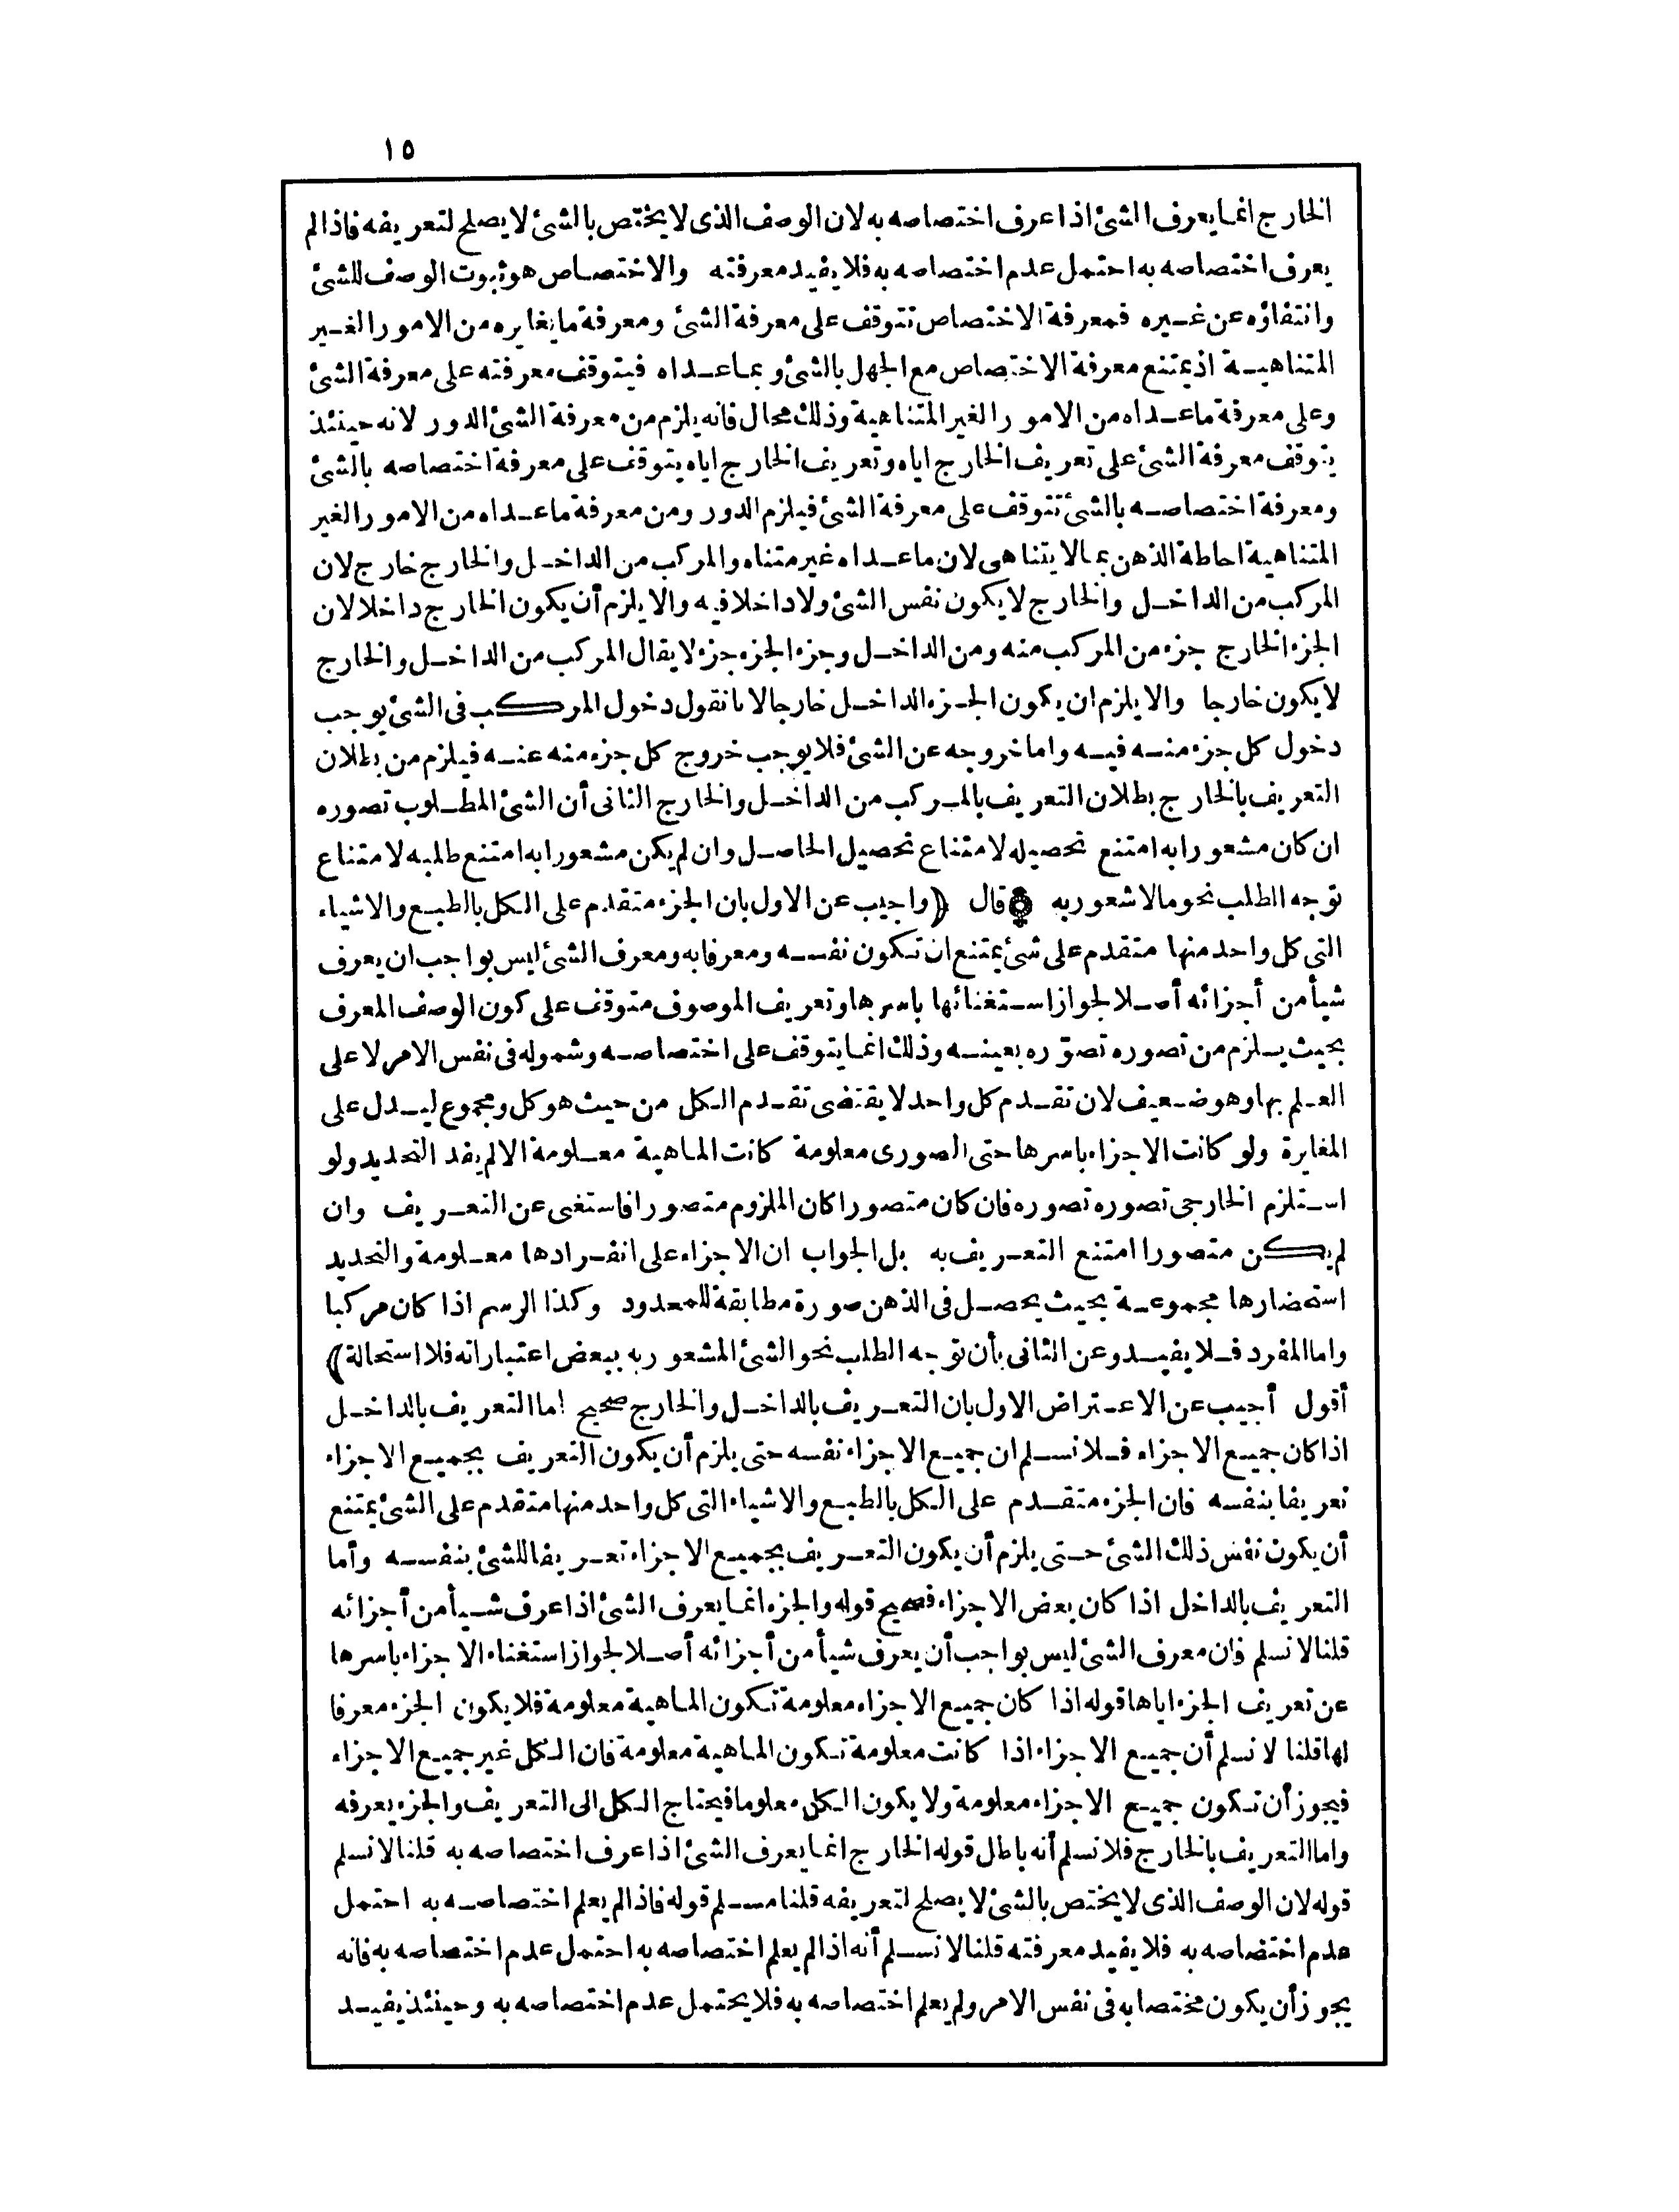 ١٥
الخارج انما يعرف الشئ اذا عرف اختصاصه به لان الوصف الذى لا يختص بالشئ لا يصلح لتعريفه فاذا لم
يعرف اختصاصه به احتمل عدم اختصاصه به فلا يفيد معرفته والاختصاص هو ثبوت الوصف للشئ
وانتفاؤه عن غيره فمعرفة الاختصاص تتوقف على معرفة الشئ ومعرفة ما يغايره من الامور الغير
المتناهية اذ يمتنع معرفة الاختصاص مع الجهل بالشئ وبما عداه فيتوقف معرفته على معرفة الشئ
وعلى معرفة ما عداه من الامور الغير المتناهية وذلك محال فانه يلزم من معرفة الشئ الدور لانه حينئذ
يتوقف معرفة الشئ على تعريف الخارج اياه وتعريف الخارج اياه يتوقف على معرفة اختصاصه بالشئ
ومعرفة اختصاصه بالشئ تتوقف على معرفة الشئ فيلزم الدور ومن معرفة ما عداه من الامور الغير
المتناهية احاطة الذهن بما لا يتناهى لان ما عداه غير متناه والمركب من الداخل والخارج خارج لان
المركب من الداخل والخارج لا يكون نفس الشئ ولا داخلا فيه والا يلزم أن يكون الخارج داخلا لان
الجزء الخارج جزء من المركب منه ومن الداخل وجزء الجزء جزء لا يقال المركب من الداخل والخارج
لا يكون خارجا والا يلزم ان يكون الجزء الداخل خارجا لانا نقول دخول المركب فى الشئ يوجب
دخول كل جزء منه فيه واما خروجه عن الشئ فلا يوجب خروج كل جزء منه عنه فيلزم من بطلان
التعريف بالخارج بطلان التعريف بالمركب من الداخل والخارج الثانى أن الشئ المطلوب تصوره
ان كان مشعورا به امتنع تحصيله لامتناع تحصيل الحاصل وان لم يكن مشعورا به امتنع طلبه لامتناع
توجه الطلب نحو مالا شعور به قال (واجيب عن الاول بان الجزء متقدم على الكل بالطبع والاشياء
التى كل واحد منها متقدم على شئ يمتنع ان تكون نفسه ومعرفا به ومعرف الشئ ليس بواجب ان يعرف
شيأ من أجزائه أصلا لجواز استغنائها باسرها وتعريف الموصوف متوقف على كون الوصف المعرف
بحيث يلزم من تصوره تصوّره بعينه وذلك انما يتوقف على اختصاصه وشموله فى نفس الامر لا على
العلم بها وهو ضعيف لان تقدم كل واحد لا يقتضى تقدم الكل من حيث هو كل ومجموع ليدل على
المغايرة ولو كانت الاجزاء باسرها حتى الصورى معلومة كانت الماهية معلومة الا لم يفد التحديد ولو
استلزم الخارجى تصوره تصوره فان كان متصورا كان الملزوم متصورا فاستغنى عن التعريف وان
لم يكن متصورا امتنع التعريف به بل الجواب ان الاجزاء على انفرادها معلومة والتحديد
استحضارها مجموعة بحيث يحصل فى الذهن صورة مطابقة للمحدود وكذا الرسم اذا كان مركبا
واما المفرد فلا يفيد وعن الثانى بأن توجه الطلب نحو الشئ المشعور به ببعض اعتباراته فلا استحالة)
أقول أجيب عن الاعتراض الاول بان التعريف بالداخل والخارج صحيح اما التعريف بالداخل
اذا كان جميع الاجزاء فلا نسلم ان جميع الاجزاء نفسه حتى يلزم أن يكون التعريف بجميع الاجزاء
تعريفا بنفسه فان الجزء متقدم على الكل بالطبع والاشياء التى كل واحد منها متقدم على الشئ يمتنع
أن يكون نفس ذلك الشئ حتى يلزم أن يكون التعريف بجميع الاجزاء تعريفا للشئ بنفسه وأما
التعريف بالداخل اذا كان بعض الاجزاء فصحيح قوله والجزء انما يعرف الشئ اذا عرف شيأ من أجزائه
قلنا لا نسلم فان معرف الشئ ليس بواجب أن يعرف شيأ من أجزائه أصلا لجواز استغناء الاجزاء باسرها
عن تعريف الجزء اياها قوله اذا كان جميع الاجزاء معلومة تكون الماهية معلومة فلا يكون الجزء معرفا
لها قلنا لا نسلم أن جميع الاجزاء اذا كانت معلومة تكون الماهية معلومة فان الكل غير جميع الاجزاء
فيجوز أن تكون جميع الاجزاء معلومة ولا يكون الكل معلوما فيحتاج الكل الى التعريف والجزء يعرفه
واما التعريف بالخارج فلا نسلم أنه باطل قوله الخارج انما يعرف الشئ اذا عرف اختصاصه به قلنا لا نسلم
قوله لان الوصف الذى لا يختص بالشئ لا يصلح لتعريفه قلنا مسلم قوله فاذا لم يعلم اختصاصه به احتمل
عدم اختصاصه به فلا يفيد معرفته قلنا لا نسلم أنه اذا لم يعلم اختصاصه به احتمل عدم اختصاصه به فانه
يجوز أن يكون مختصا به فى نفس الامر ولم يعلم اختصاصه به فلا يحتمل عدم اختصاصه به وحينئذ يفيد